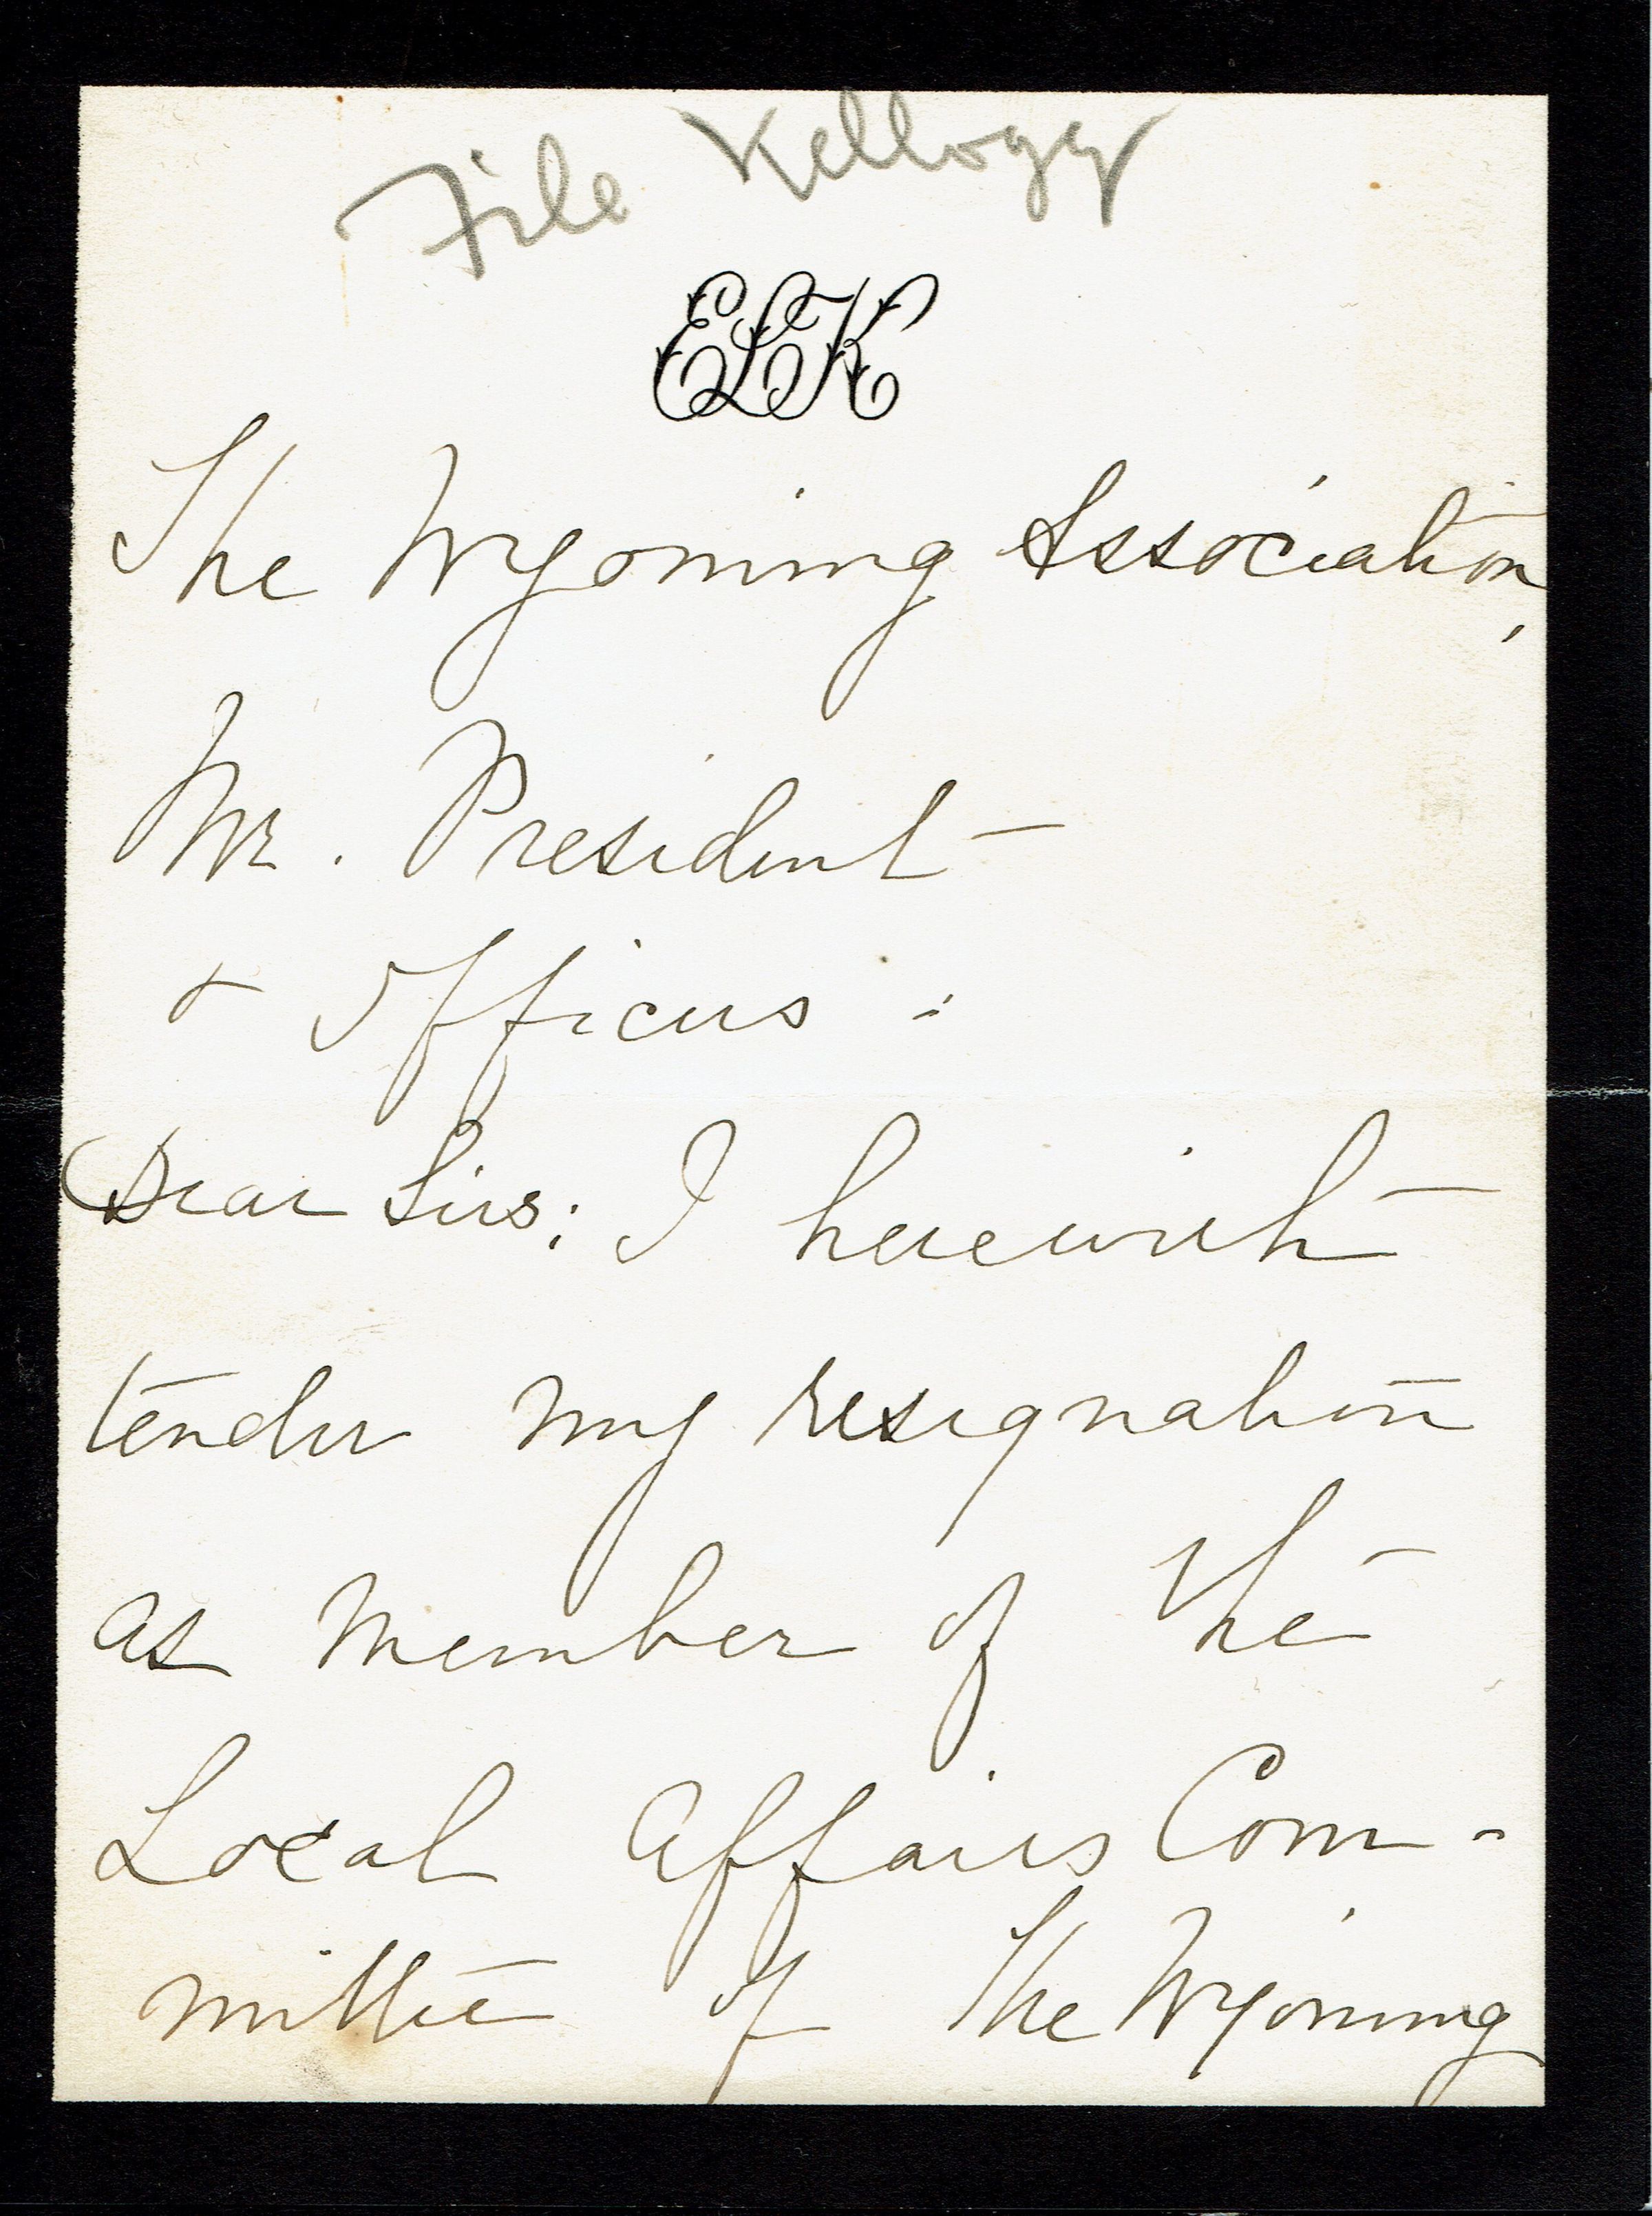 File Kellogg
ELK
The Wyoming Association,
Mr. President
& Officers :
Dear Sirs: I herewith
tender my resignation
as member of the
Local Affairs Com-
mittee of The Wyoming